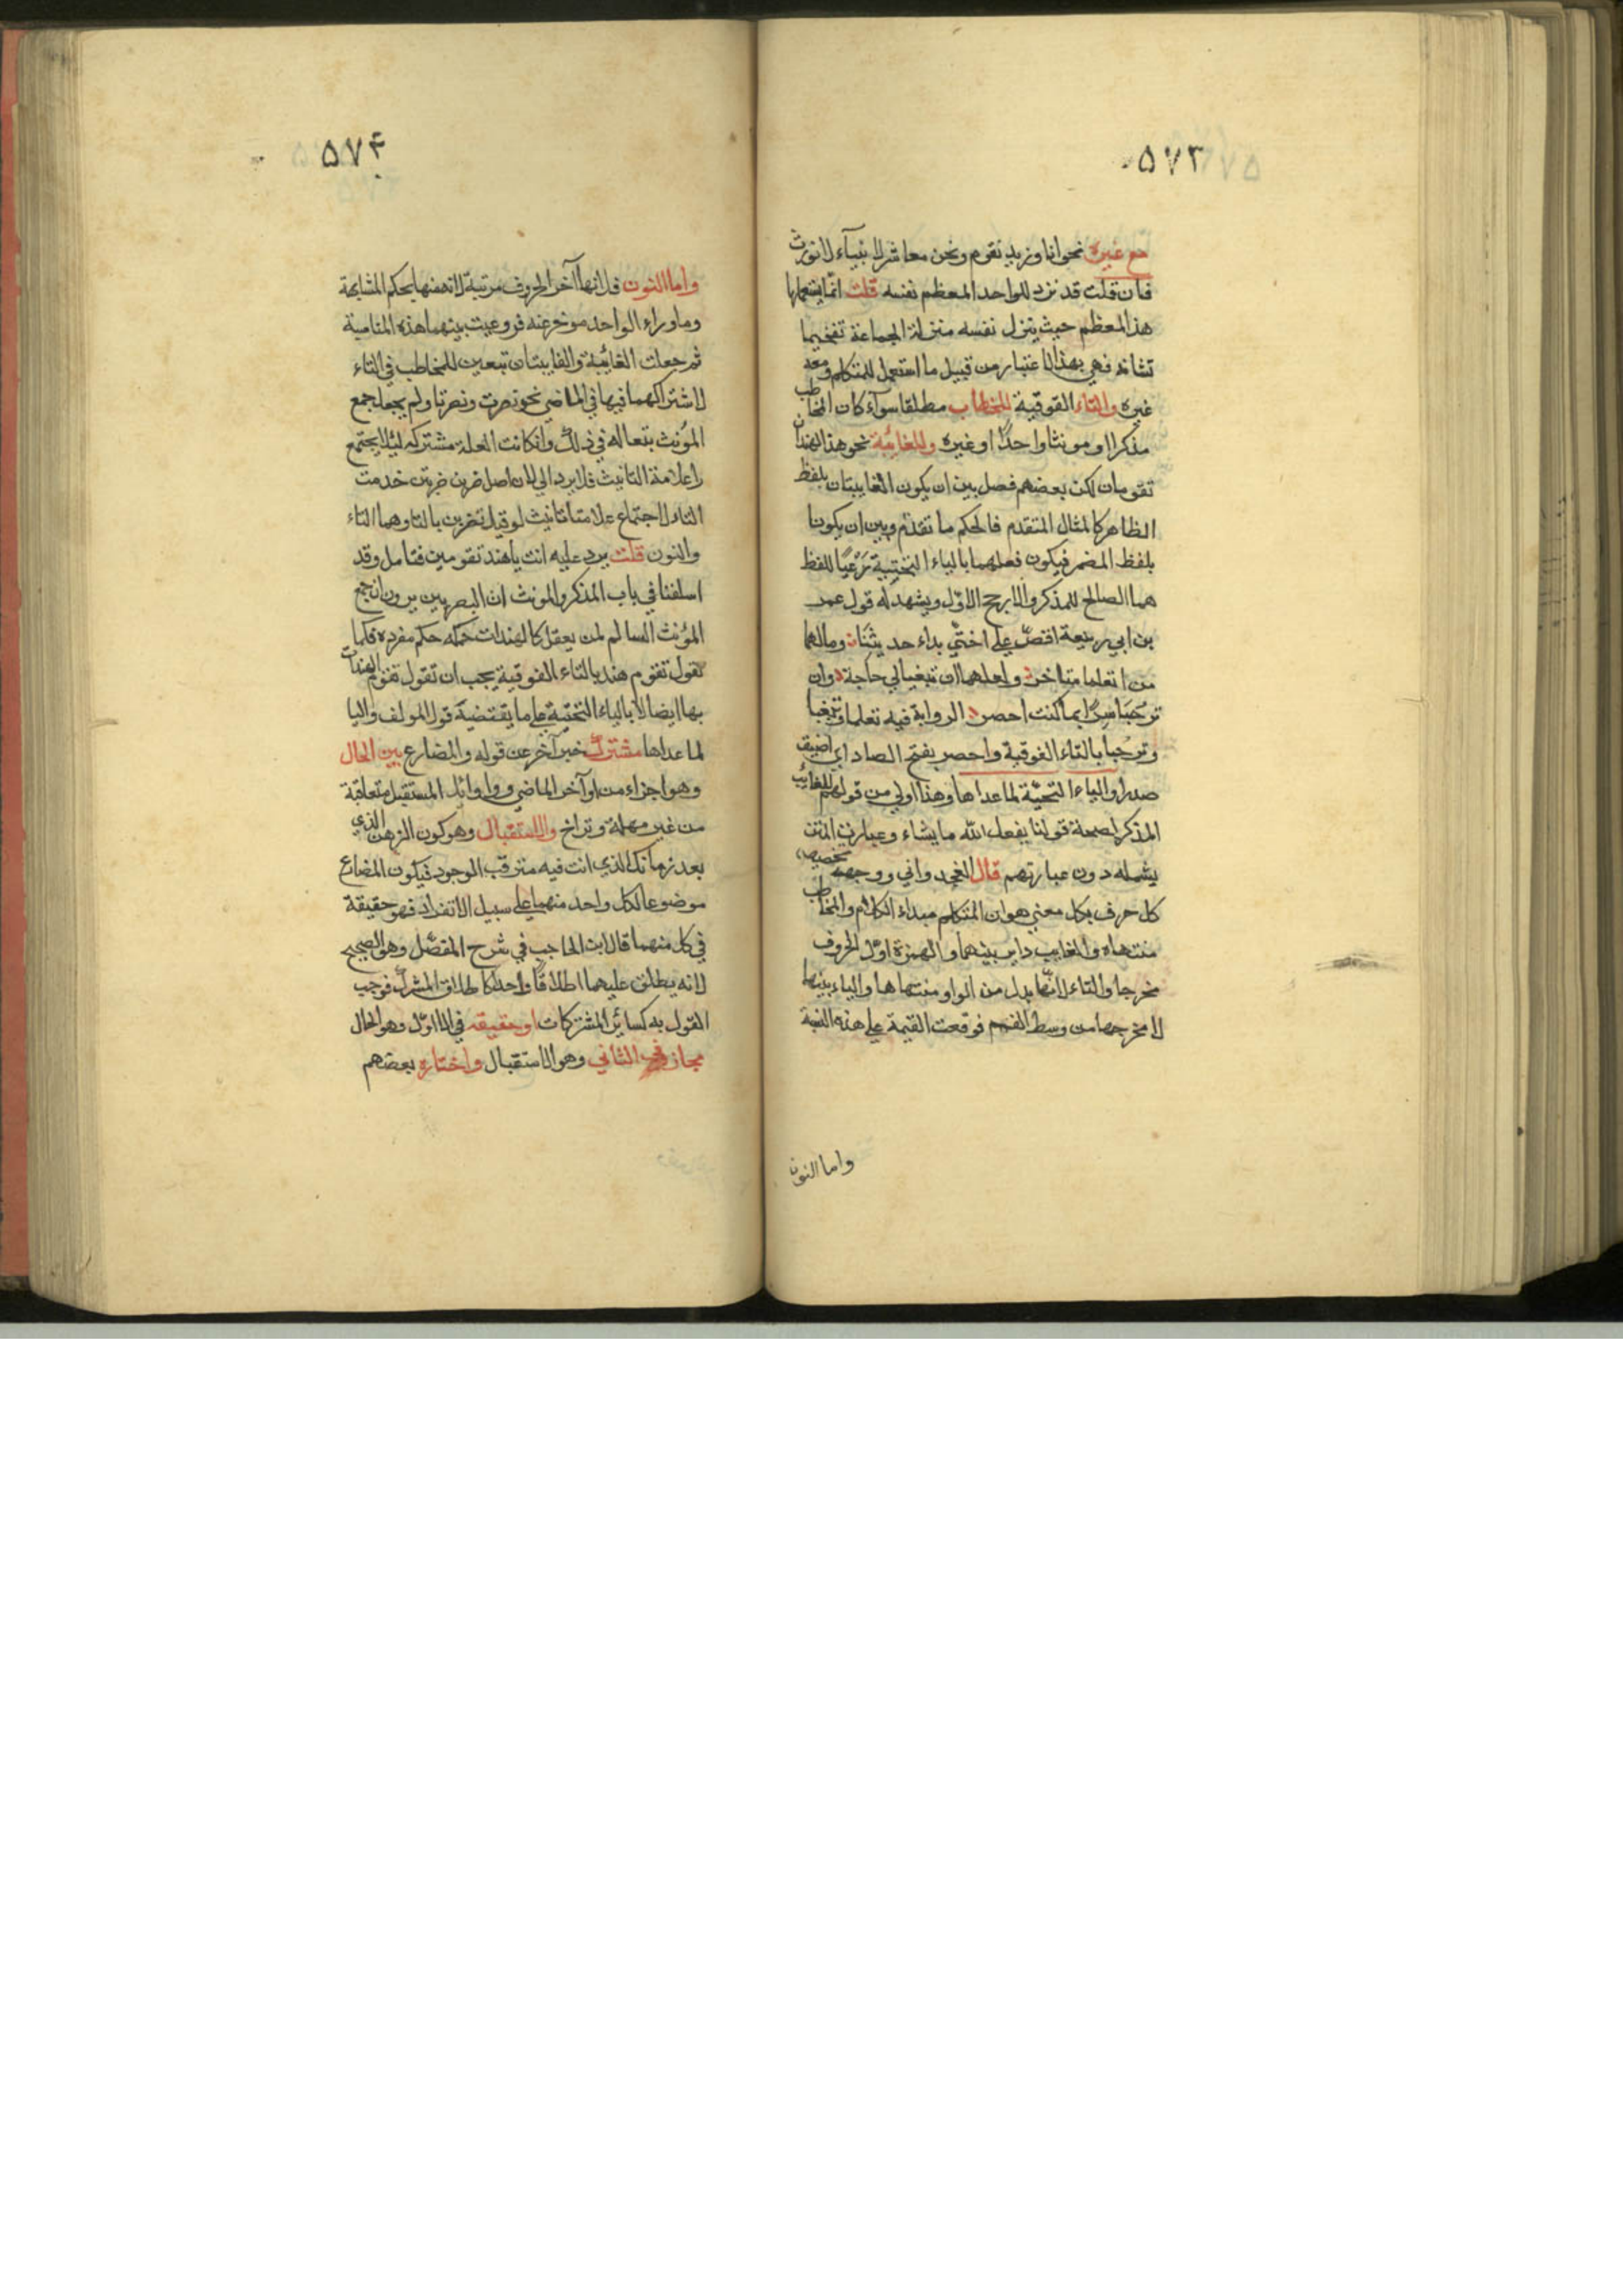 ۵۷۳
مع غيره نحو انا وزيد نقوم ونحن معاشر الانبيآء لا نورث
فان قلت قد ترد للواحد المعظم نفسه قلت انما يستعملها
هذا المعظم حيث ينزل نفسه منزلة الجماعة تفخيما
لشانه فهي بهذا الاعتبار من قبيل ما استعمل للمتكلم ومعه
غيره والتاء الفوقية للمخاطب مطلقا سوآء كان المخاطب
مذكرا او مونثا واحدًا او غيره وللغائبة نحو هذا الهندان
تقومان لكن بعضهم فصل بين ان يكون الغايبتان بلفظ
الظاهر كالمثال المتقدم فالحكم ما تقدّم وبين ان يكونا
بلفظ المضمر فيكون فعلهما بالياء التحتيية رَعْيًا للفظ
هما الصالح للمذكر والارجح الاوّل ويشهد له قول عمر
بن ابي ربيعة اقصّ علي اختيّ بداء حديثنَا وما لهما
من ان تعلما متاخر ولعلهما ان تبغيا لي حاجة وان
ترحُبَا سِرًا بما كنت احصر الرواية فيه تعلما وتبغيا
وترحُبا بالتاء الفوقية واحصر بفتح الصاد اي اضيق
صدرا والياء التحتيّة لما عداها وهذا اولي من قولهم للغايب
المذكر لصحة قولنا يفعل الله ما يشاء وعبارت المتن
يشمله دون عبارتهم قال الغجدواني ووجهه تخصيص
كل حرف بكل معني هو ان المتكلم مبداء الكلام والمخاطب
منتهاه والغايب داير بينهما والهمزة اوّل الحروف
مخرجا والتاء لانّها بدل من الواو منتهاها والياء بينهما
لا مخرجها من وسط الفم فوقعت القيمة علي هذه النسبة
واما النون
۵۷۴
واما النون فلانها آخر الحروف مرتبة لانهمنها بحكم المشابهة
وما وراء الواحد موخر عنه فروعيت بينهما هذه المناسبة
ثم جعلت الغائبة والغايبتان تبعين للمخاطب في التاء
لاشتراكهما فيها في الماضي نحو نصرت ونصرتا ولم يجعل جمع
المؤنث تبعا له في ذلك وانكانت العلة مشتركه ليلا يجتمع
علامة التانيث فلا يرد الي لان اصل ضربن ضربتن خدمت
التاء لاجتماع علامتا تانيث لو قيل تضربن بالتا وهما التاء
والنون قلت يرد عليه انت ياهند تقومين فتامل وقد
اسلفنا في باب المذكر والمونث ان البصريين يرون ان جمع
المؤنث السالم لمن يعقل كالهندات حكمه حكم مفرده فكما
تقول تقوم هند بالتاء الفوقية يجب ان تقول تقوم الهندات
بها ايضا لا بالياء التحتيّة علي ما يقتضيه قول المولف واليا
لما عداها مشترك خبر آخر عن قوله والمضارع بين الحال
وهو اجزاء من اوآخر الماضي واوائل المستقبل متعاقبة
من غير مهلة وتراخ والاستقبال وهو كون الزمن الذي
بعد زمانك الذي انت فيه مترقب الوجود فيكون المضارع
موضوعا لكل واحد منهما علي سبيل الانفراد فهو حقيقة
في كل منهما قال ابن الحاجب في شرح المفصّل وهو الصحيح
لانه يطلق عليهما اطلاقًا واحدًا كاطلاق المشترك فوجب
القول به كسائر المشتركات او حقيقه في الاوّل وهو الحال
مجاز في الثاني وهو الاستقبال واختاره بعضهم